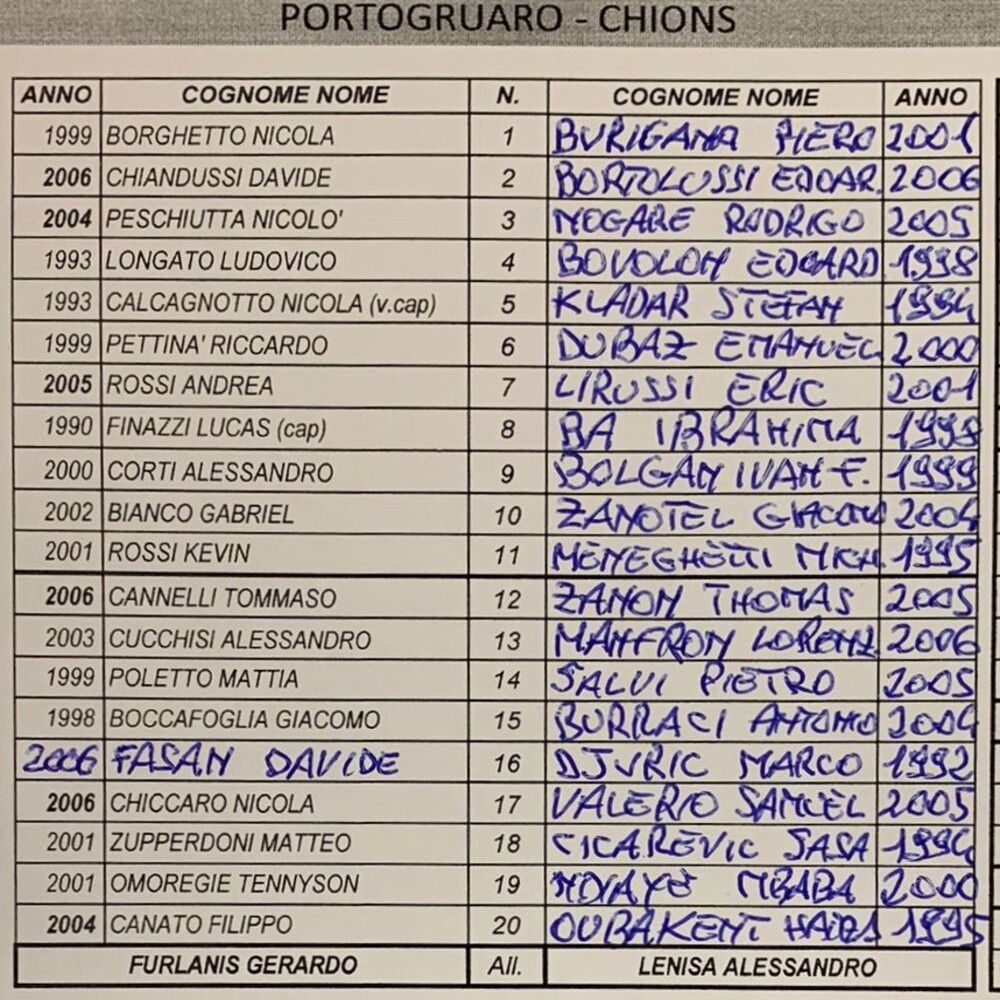 PORTOGRUARO - CHIONS
ANNO COGNOME NOME N. COGNOME NOME ANNO
1999 BORGHETTO NICOLA 1 BURIGANA PIERO 2001
2006 CHIANDUSSI DAVIDE 2 BORTOLUSSI EDOAR. 2006
2004 PESCHIUTTA NICOLO' 3 MOGARE RODRIGO 2005
1993 LONGATO LUDOVICO 4 BOVOLON EDOARD 1998
1993 CALCAGNOTTO NICOLA (v.cap) 5 KLADAR STEFAN 1994
1999 PETTINA' RICCARDO 6 DUBAZ EMANUEL 2000
2005 ROSSI ANDREA 7 LIRUSSI ERIC 2001
1990 FINAZZI LUCAS (cap) 8 BA IBRAHIMA 1998
2000 CORTI ALESSANDRO 9 BOLGAN IVAN F. 1999
2002 BIANCO GABRIEL 10 ZANOTEL GIACOMO 2004
2001 ROSSI KEVIN 11 MENEGHETTI MICH 1995
2006 CANNELLI TOMMASO 12 ZANON THOMAS 2005
2003 CUCCHISI ALESSANDRO 13 MANFRON LORENZ 2006
1999 POLETTO MATTIA 14 SALVI PIETRO 2005
1998 BOCCAFOGLIA GIACOMO 15 BURRACI ANTONIO 2004
2006 FASAN DAVIDE 16 DJURIC MARCO 1992
2006 CHICCARO NICOLA 17 VALERIO SAMUEL 2005
2001 ZUPPERDONI MATTEO 18 CICAREVIC SASA 1994
2001 OMOREGIE TENNYSON 19 NDIAYE MBABA 2000
2004 CANATO FILIPPO 20 OUBAKENT 1995
FURLANIS GERARDO All. LENISA ALESSANDRO